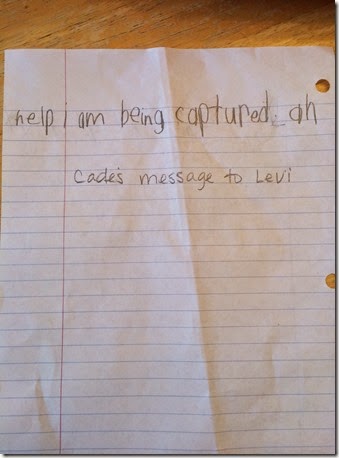 help i am being captured. ah
Cade's message to Levi